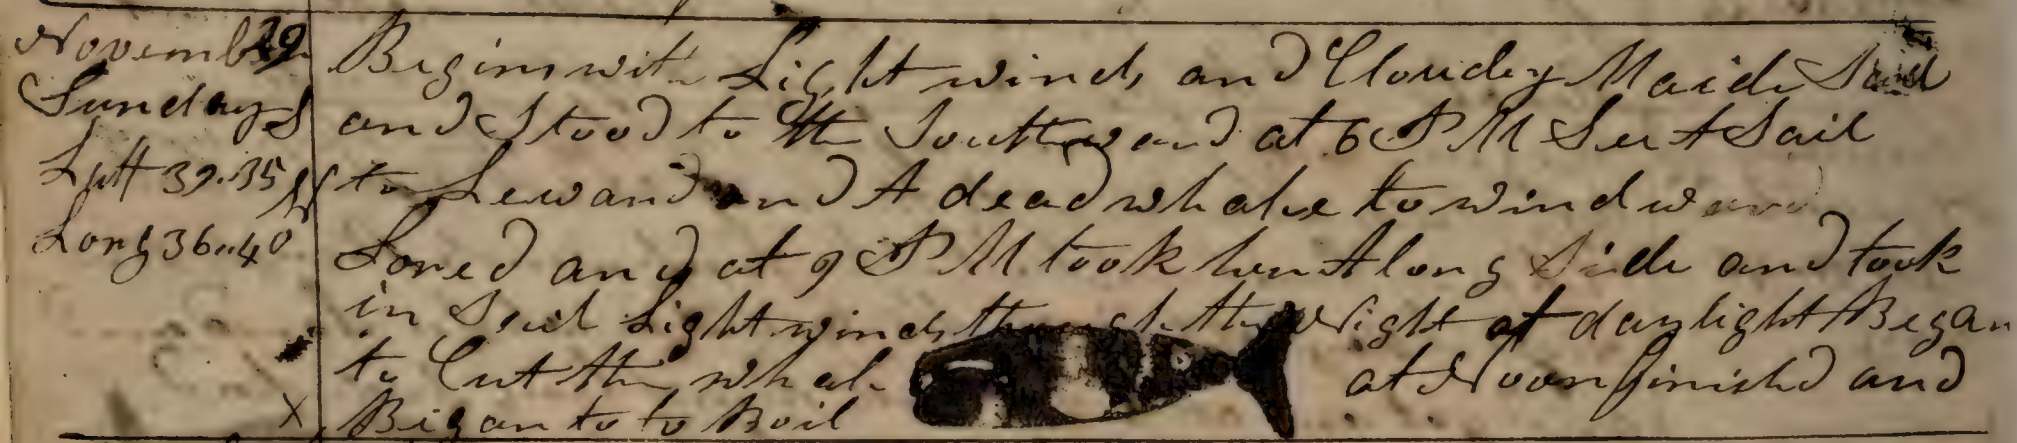 November 29
Sunday
Latt 39.35 N
Long 36..40
Begins with Light winds and Cloudey Maide Sail
and Stood to the Southward at 6 P M See A Sail
to Leward and A dead whale to windward
Lored and at 9 P M took her Along Side and took
in Sail Light winds through the Night at daylight Began
to Cut the whale at Noon finishd and
X Began to to Boil